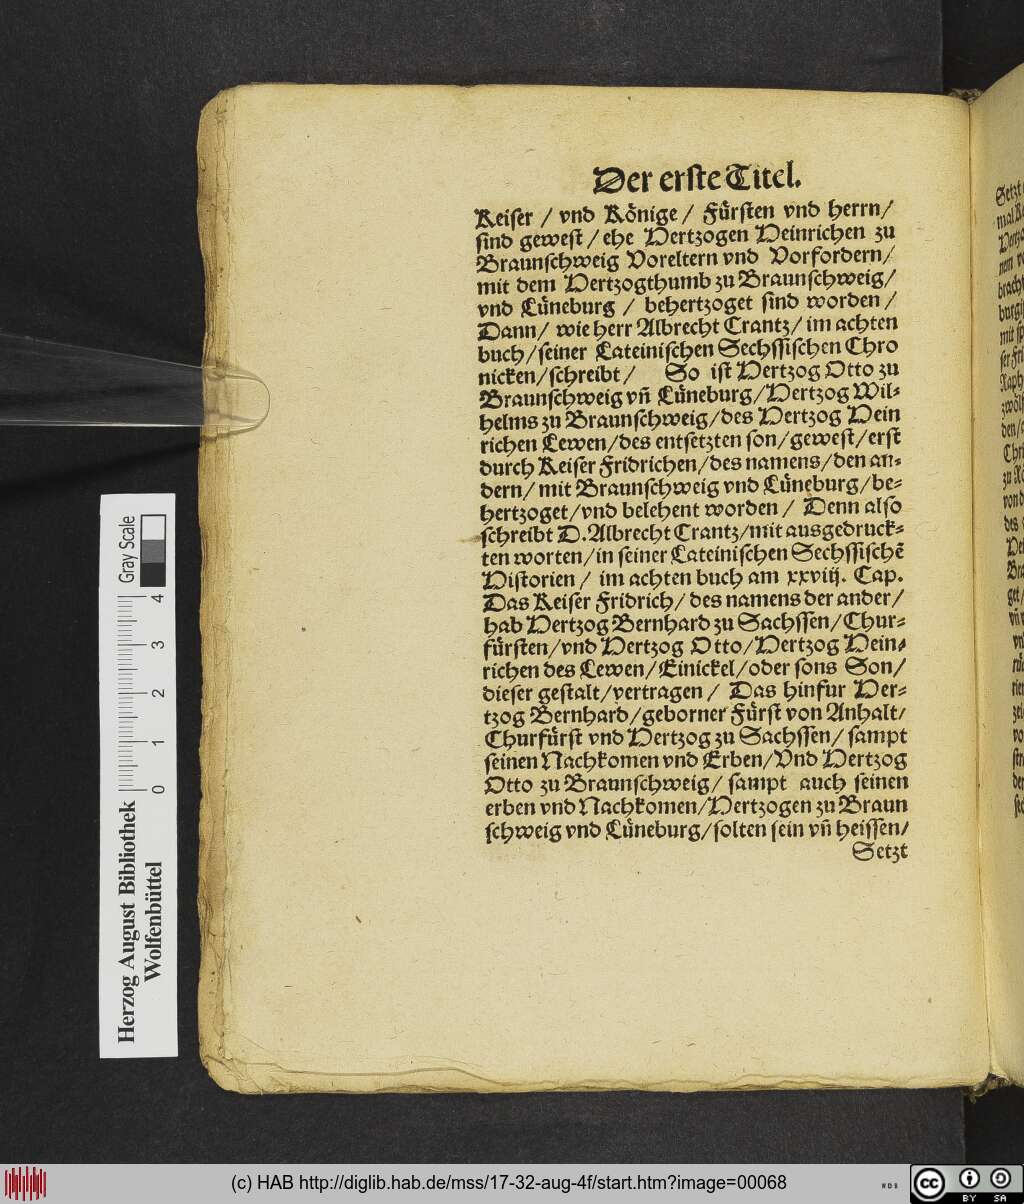 Der erste Titel.
Keiser / vnd Könige / Fürsten vnd herrn /
sind gewest / ehe Hertzogen Heinrichen zu
Braunschweig Voreltern vnd Vorfordern /
mit dem Hertzogthumb zu Braunschweig /
vnd Lüneburg / behertzoget sind worden /
Dann / wie herr Albrecht Crantz / im achten
buch / seiner Lateinischen Sechssischen Chro
nicken / schreibt / So ist Hertzog Otto zu
Braunschweig vñ Lüneburg / Hertzog Wil-
helms zu Braunschweig / des Hertzog Hein
richen Lewen / des entsetzten son / gewest / erst
durch Keiser Fridrichen / des namens / den an-
dern / mit Braunschweig vnd Lüneburg / be-
hertzoget / vnd belehent worden / Denn also
schreibt D. Albrecht Crantz / mit ausgedruck-
ten worten / in seiner Lateinischen Sechssischē
Historien / im achten buch am xxviij. Cap.
Das Keiser Fridrich / des namens der ander /
hab Hertzog Bernhard zu Sachssen / Chur-
fürsten / vnd Hertzog Otto / Hertzog Hein-
richen des Lewen / Einickel / oder sons Son /
dieser gestalt / vertragen / Das hinfur Her-
tzog Bernhard / geborner Fürst von Anhalt /
Churfürst vnd Hertzog zu Sachssen / sampt
seinen Nachkomen vnd Erben / Vnd Hertzog
Otto zu Braunschweig / sampt auch seinen
erben vnd Nachkomen / Hertzogen zu Braun
schweig vnd Lüneburg / solten sein vñ heissen /
Setzt
Gray Scale
0 1 2 3 4
Herzog August Bibliothek
Wolfenbüttel
(c) HAB http://diglib.hab.de/mss/17-32-aug-4f/start.htm?image=00068
cc BY SA